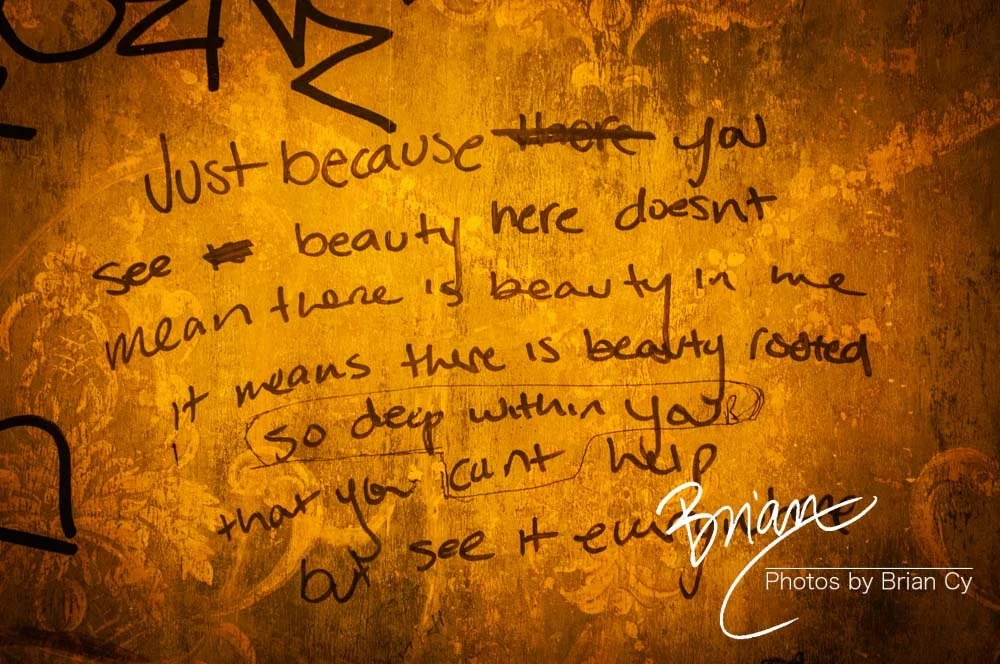 Just because you
see beauty here doesnt
mean there is beauty in me
it means there is beauty rooted
so deep within youR
that you cunt help
but see it
Brian
Photos by Brian Cy